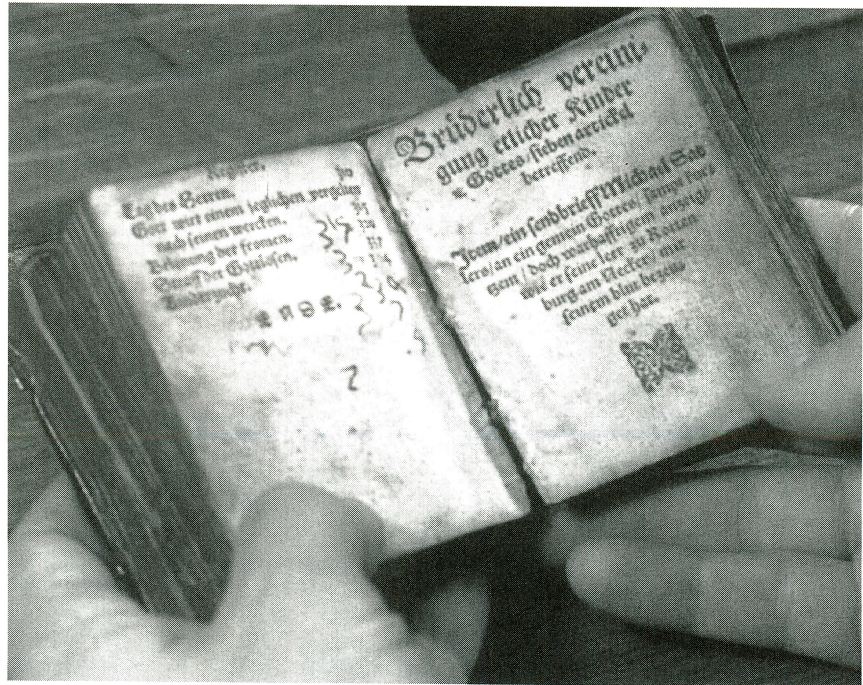 Register.
Tag des Herren.
Gott wirt einem jeglichen vergelten
nach seinen wercken.
Belonung der fromen.
Straff der Gottlosen.
Kinderzucht.
ENDE.
Brüderlich vereini-
gung etlicher Kinder
Gottes / sieben artickel
betreffend.
Item / ein sendbrieff Michael Sat
lers / an ein gemein Gottes /
sem / doch warhafftigem anzeig /
wie er seine leer zu Rotten
burg am Necker / mit
seinem blut bezeu-
get hat.